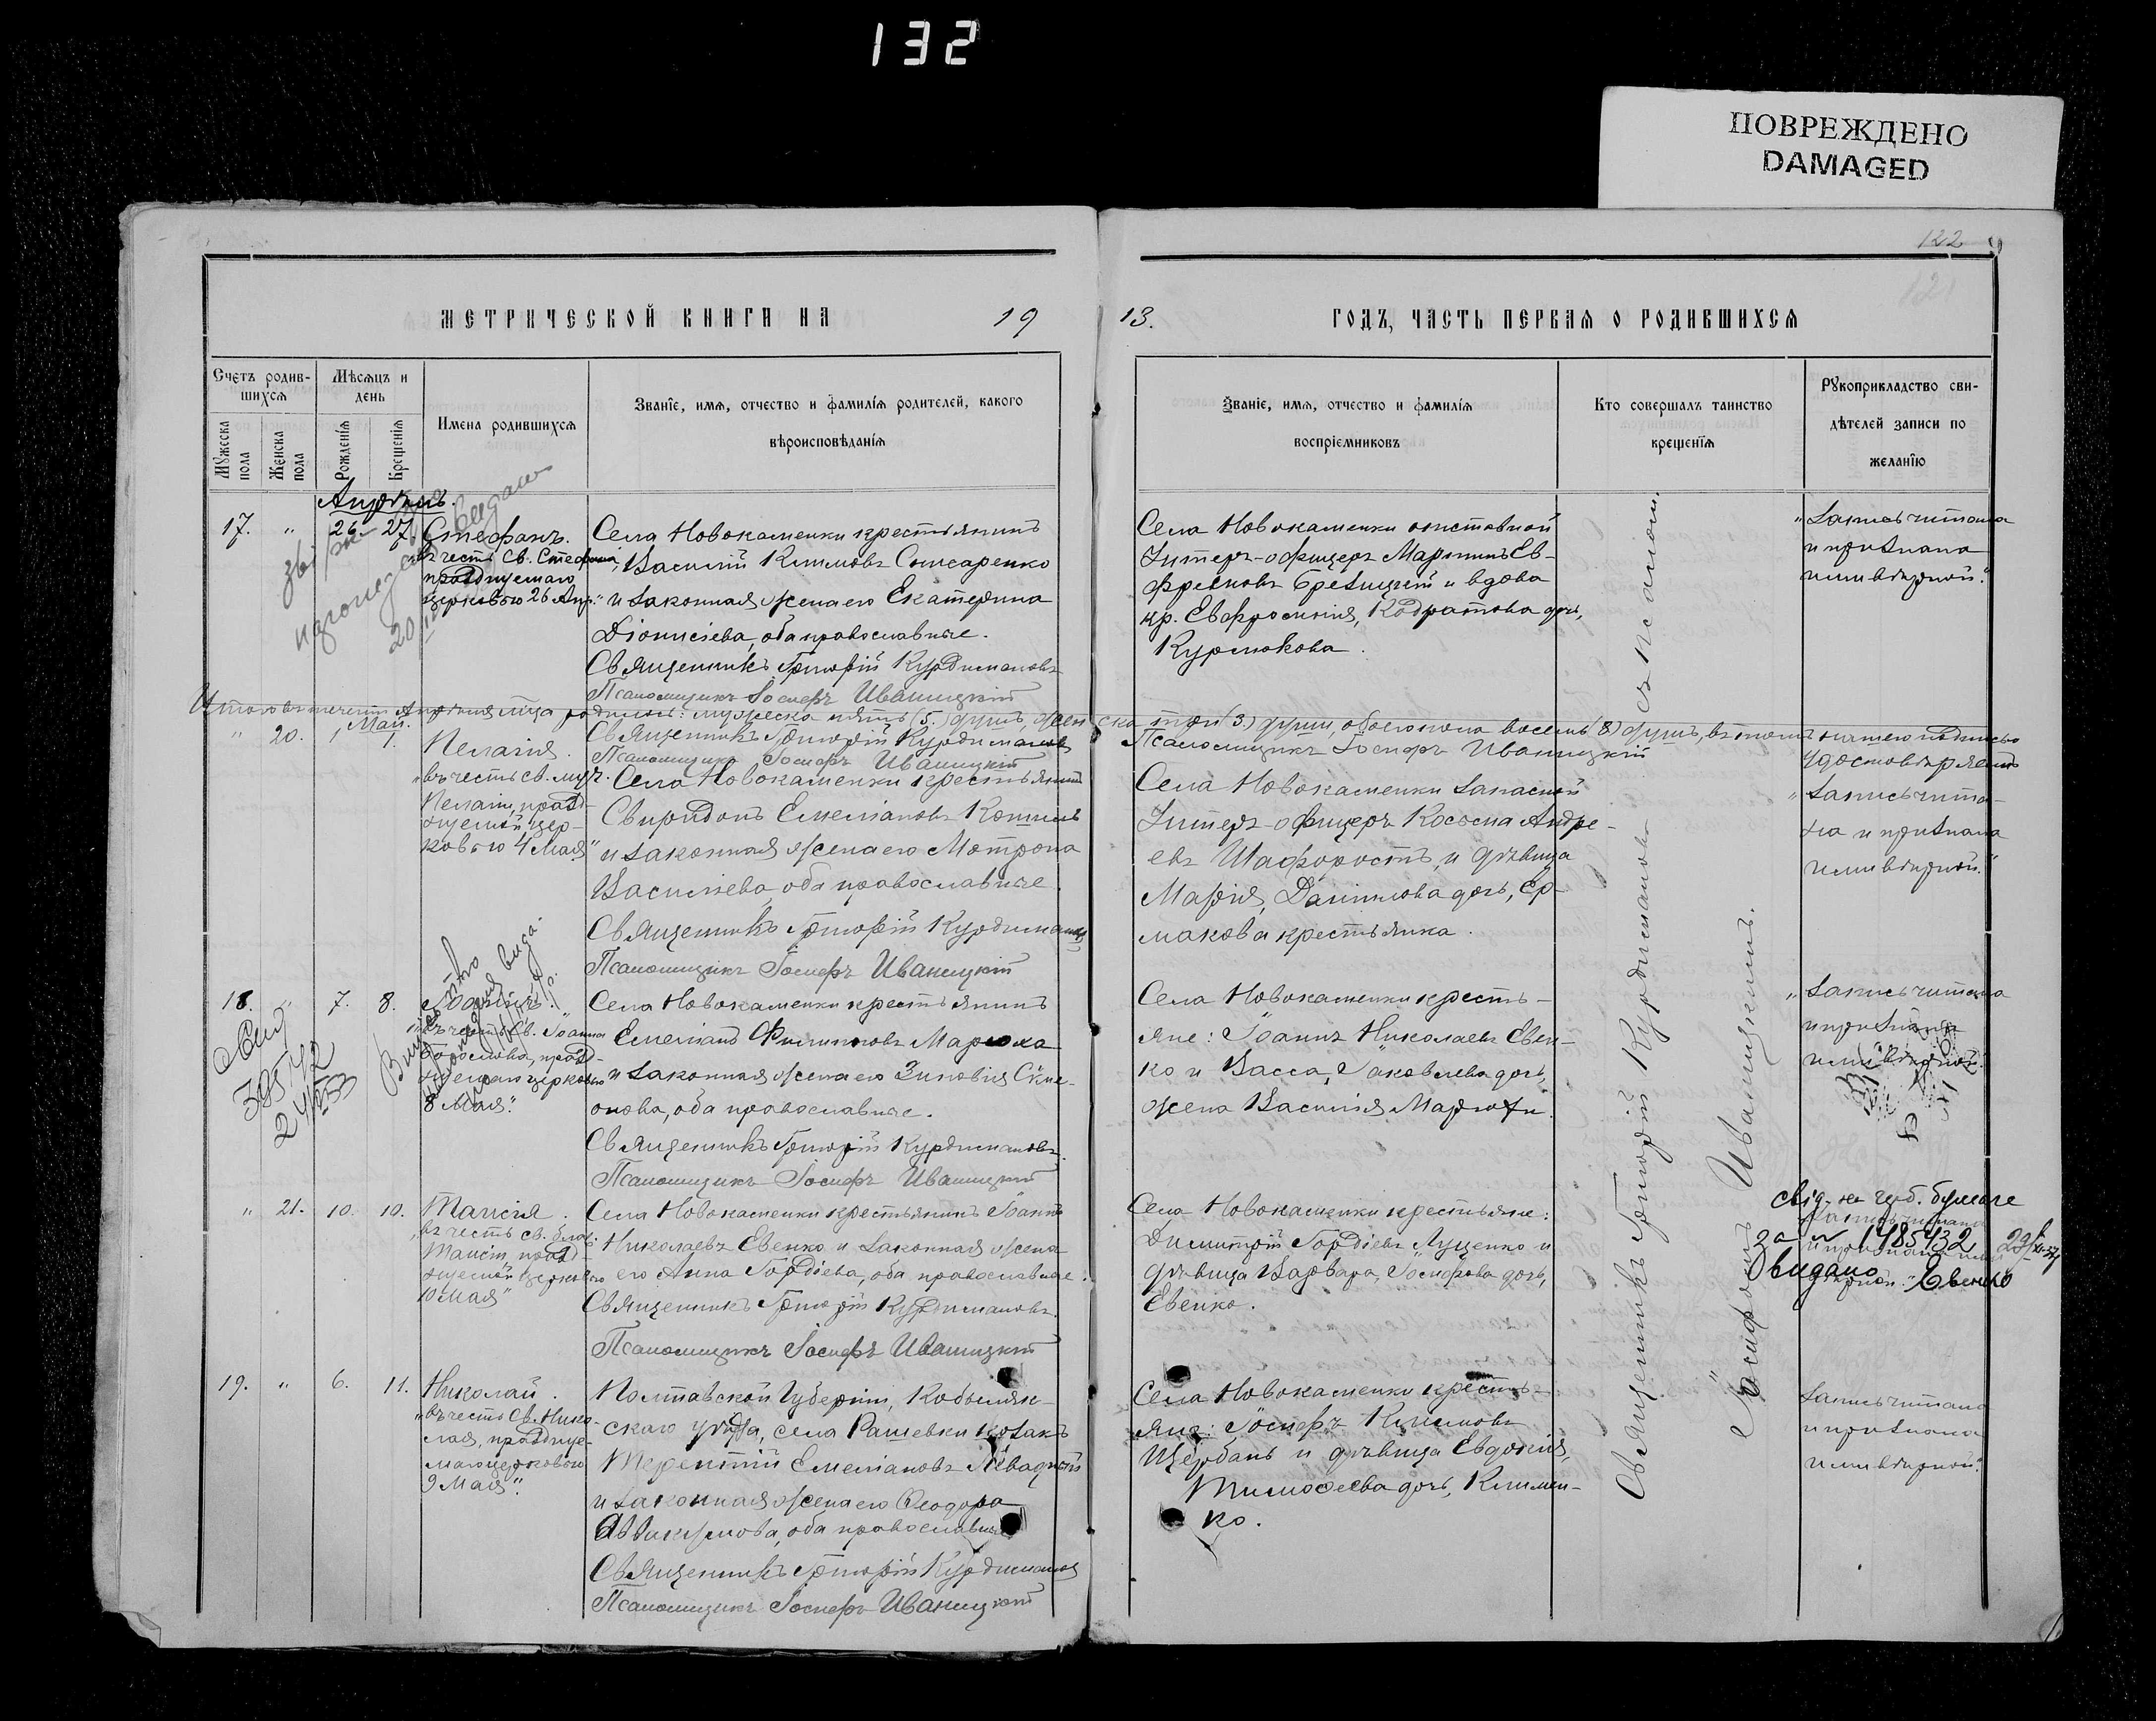 132
ПОВРЕЖДЕНО
DAMAGED
122
121
МЕТРИЧЕСКОЙ КНИГИ НА 19
13. ГОДЪ, ЧАСТЬ ПЕРВАЯ О РОДИВШИХСЯ
Счетъ родив-
шихся
Мѣсяцъ и
день
Мужеска
пола
Женска
пола
Рожденія
Крещенія
Имена родившихся
Званіе, имя, отчество и фамилія родителей, какого
вѣроисповѣданія
Званіе, имя, отчество и фамилія
воспріемниковъ
Кто совершалъ таинство
крещенія
Рукоприкладство сви-
дѣтелей записи по
желанію
Апрѣль.
17. " 26. 27. Стефанъ.
въ честь Св. Стефана,
празднуемаго
церковью 26 Апр."
Села Новокаменки крестьянинъ
Василій Климовъ Слисаренко
и законная жена его Екатерина
Діонисіева, оба православные.
Священникъ Григорій Курдимановъ
Псаломщикъ Іосифъ Иваницкій
Села Новокаменки
Унтеръ-офицеръ Мартинъ Ев-
и вдова
кр. Евфросинія, Кодратова дочь,
Курлюкова.
"Запись читана
и признана
ими вѣрной."
Итого въ теченіи Апрѣля м-ца родилось: мужеска пять (5.) душъ, женска три (3.) души, обоего пола восемь (8) душъ, въ томъ нашею подписью
удостовѣряемъ
Священникъ Григорій Курдимановъ
Псаломщикъ Іосифъ Иваницкій
Псаломщикъ Іосифъ Иваницкій
Май.
" 20. 1. 1. Пелагія.
"въ честь св. муч.
Пелагіи, празд-
нуемой цер-
ковью 4 Мая"
Села Новокаменки крестьянинъ
Свиридонъ Емеліановъ
и законная жена его Мотрона
Васильева, оба православные.
Священникъ Григорій Курдимановъ
Псаломщикъ Іосифъ Иваницкій
Села Новокаменки запасной
Унтеръ-офицеръ Косьма Андре-
евъ Шафоростъ, и дѣвица
Марія, Даніилова дочь, Ер-
макова крестьянка.
"Запись чита-
на и признана
ими вѣрной."
18. " 7. 8. Іоаннъ.
"въ честь Св. Іоанна
Богослова, празд-
нуемаго церковью
8 Мая."
Села Новокаменки крестьянинъ
Емеліанъ Филиповъ Марюха
и законная жена его Зиновія Симе-
онова, оба православные.
Священникъ Григорій Курдимановъ.
Псаломщикъ Іосифъ Иваницкій
Села Новокаменки кресть-
яне: Іоаннъ Николаевъ Евен-
ко и Васса, Іаковлева дочь,
жена Василія Марюхи.
"Запись читана
и признана
ими вѣрной."
" 21. 10. 10. Таисія.
"въ честь св. блаж.
Таисіи, празд-
нуемой церковью
10 Мая"
Села Новокаменки крестьянинъ Іоаннъ
Николаевъ Евенко и законная жена
его Анна Гордіева, оба православные.
Священникъ Григорій Курдимановъ.
Псаломщикъ Іосифъ Иваницкій
Села Новокаменки крестьяне:
Димитрій Гордіевъ Луценко и
дѣвица Варвара, Іосифова дочь,
Евенко.
свід. на герб. бумаге
за № 1485432
видано Евенко
19. " 6. 11. Николай.
"въ честь Св. Нико-
лая, праздnуе-
маго церковью
9 Мая."
Полтавской Губерніи, Кобеляк-
скаго уѣзда, села Рашевки козакъ
Терентій Емеліановъ Левадный
и законная жена его Ѳеодора
оба православные
Священникъ Григорій Курдимановъ
Псаломщикъ Іосифъ Иваницкій
Села Новокаменки кресть-
яне: Іосифъ Климовъ
Щербань и дѣвица Евдокія,
Тимоѳеева дочь, Климен-
ко.
Запись читана
и признана
ими вѣрной."
Священникъ Григорій Курдимановъ съ псаломщ.
Іосифомъ Иваницкимъ.